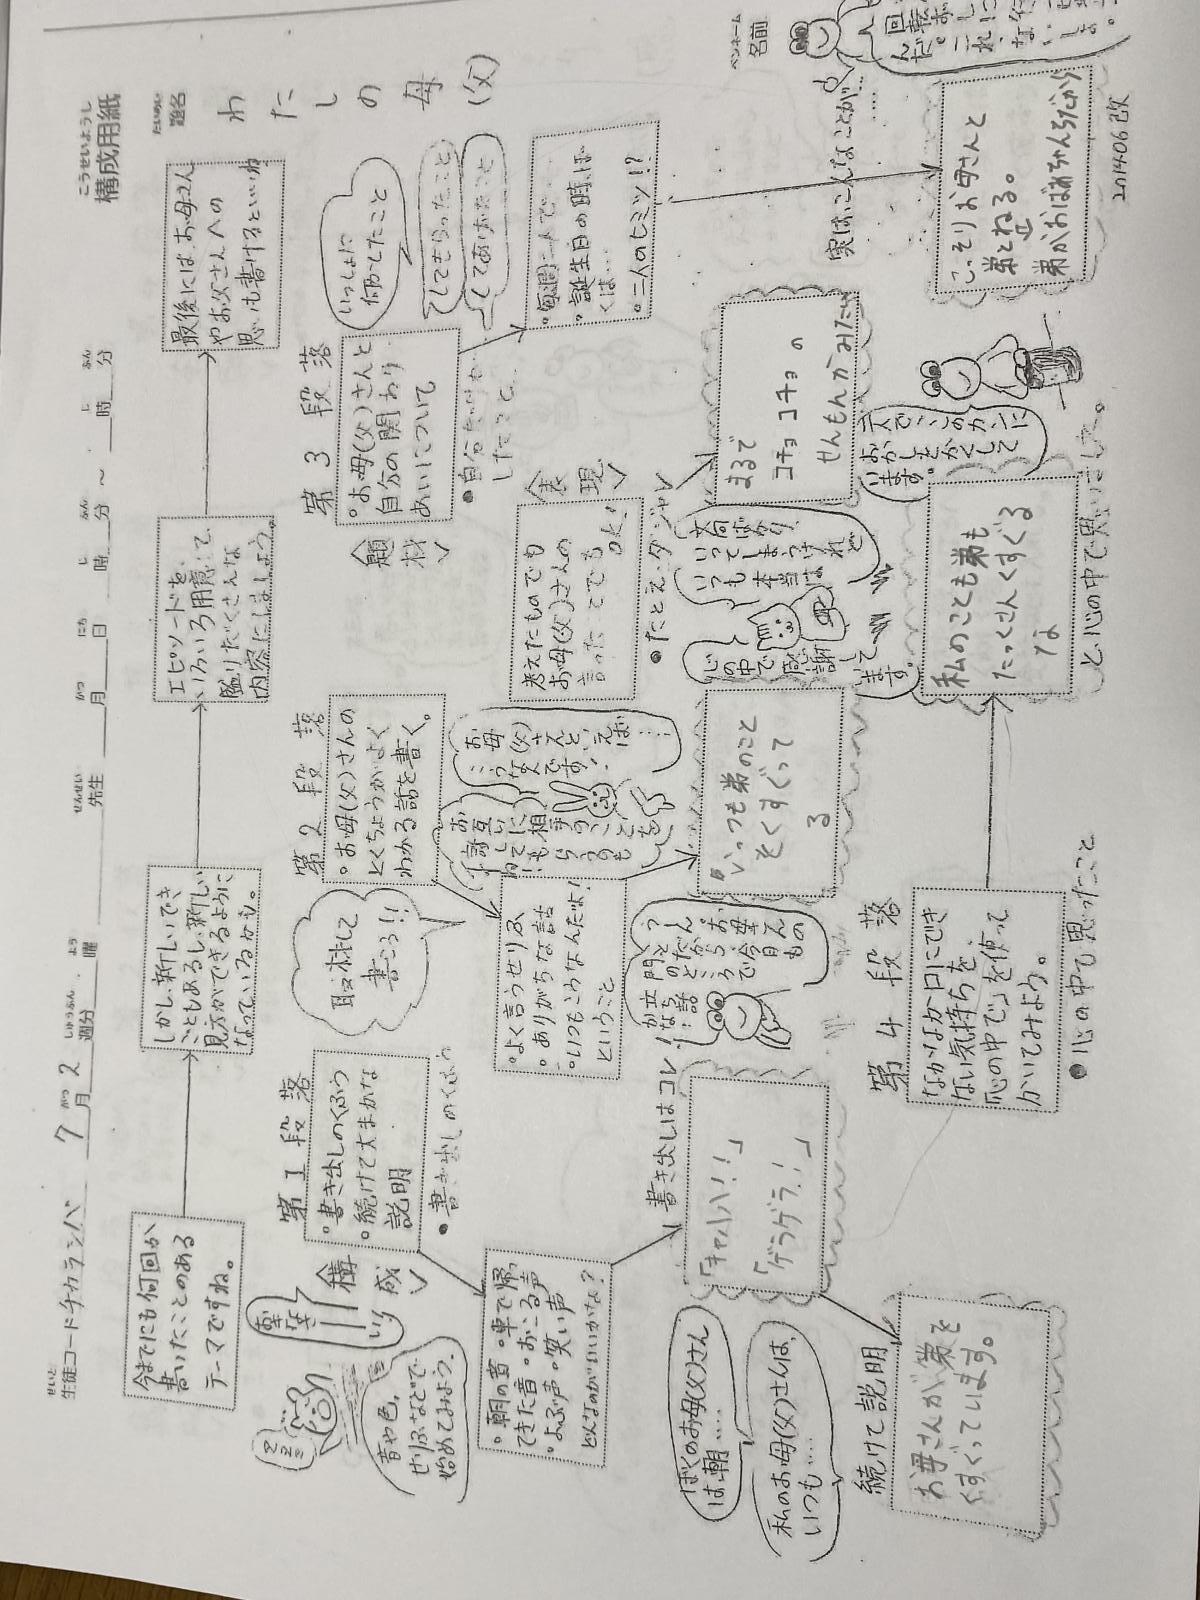 こうせいようし
構成用紙
せいと
生徒コード チカランバ 7月2週分
がつ
しゅうぶん
よう
曜
せんせい
先生
がつ
月
にち
日
じ
時
ふん
分
～
じ
時
ふん
分
だいめい
題名
わたしの母(父)
ペンネーム
名前
今までにも何回か
書いたことのある
テーマですね。
しかし、新しいでき
ごともあるし、新しい
見方ができるように
なっているかも。
エピソードを、
いろいろ用意して、
盛りだくさんな
内容にしましょう。
最後にはお母さん
やお父さんへの
思いも書けるといいね
〈構成〉
第1段落
・書き出しのくふう
・続けて大まかな
説明
●書き出しのくふう
音や色、
せりふなどで
始めてみよう。
・朝の音・車で帰っ
てきた音・おこる声
・よぶ声・笑い声
どんなのがいいかな?
書き出しはコレ!
「キャハハ!!」
「ゲラゲラ!」
ぼくのお母(父)さん
は、朝……
私のお母(父)さんは、
いつも……
続けて説明
お母さんが弟を
くすぐっています。
取材して
書こう!!
第2段落
・お母(父)さんの
とくちょうがよく
わかる話を書く。
お母(父)さんと
いえば……
こうなんです!
お互いに相手のことを
・よく言うせりふ
・ありがちな話
・いつもこうなんだよ!
ということ
いつも弟のこと
をくすぐって
る
〈題材〉
第3段落
・お母(父)さんと
自分の関わり
あいについて
いっしょに
何かしたこと
してもらったこと
してあげたこと
・毎週二人で…
・誕生日の時、ぼ
くは…
・二人のヒミツ!?
実は、こんなことが……
こっそりお母さんと
弟とねる。
弟がおばあちゃんちだから
〈表現〉
考えたものでも
お母(父)さんの
言ったことでもOK!
●たとえ・ダジャレ
まるで
コチョコチョの
せんもんかみたい
文句ばかり
いってしまうけれど
いつも本当は
心の中で感謝して
ます。
第4段落
なかなか口にでき
ない気持ちを
「心の中で」を使って
かいてみよう。
●心の中で思ったこと
私のことも弟も
たっくさんくすぐる
な
と、心の中で思いました。
201406改